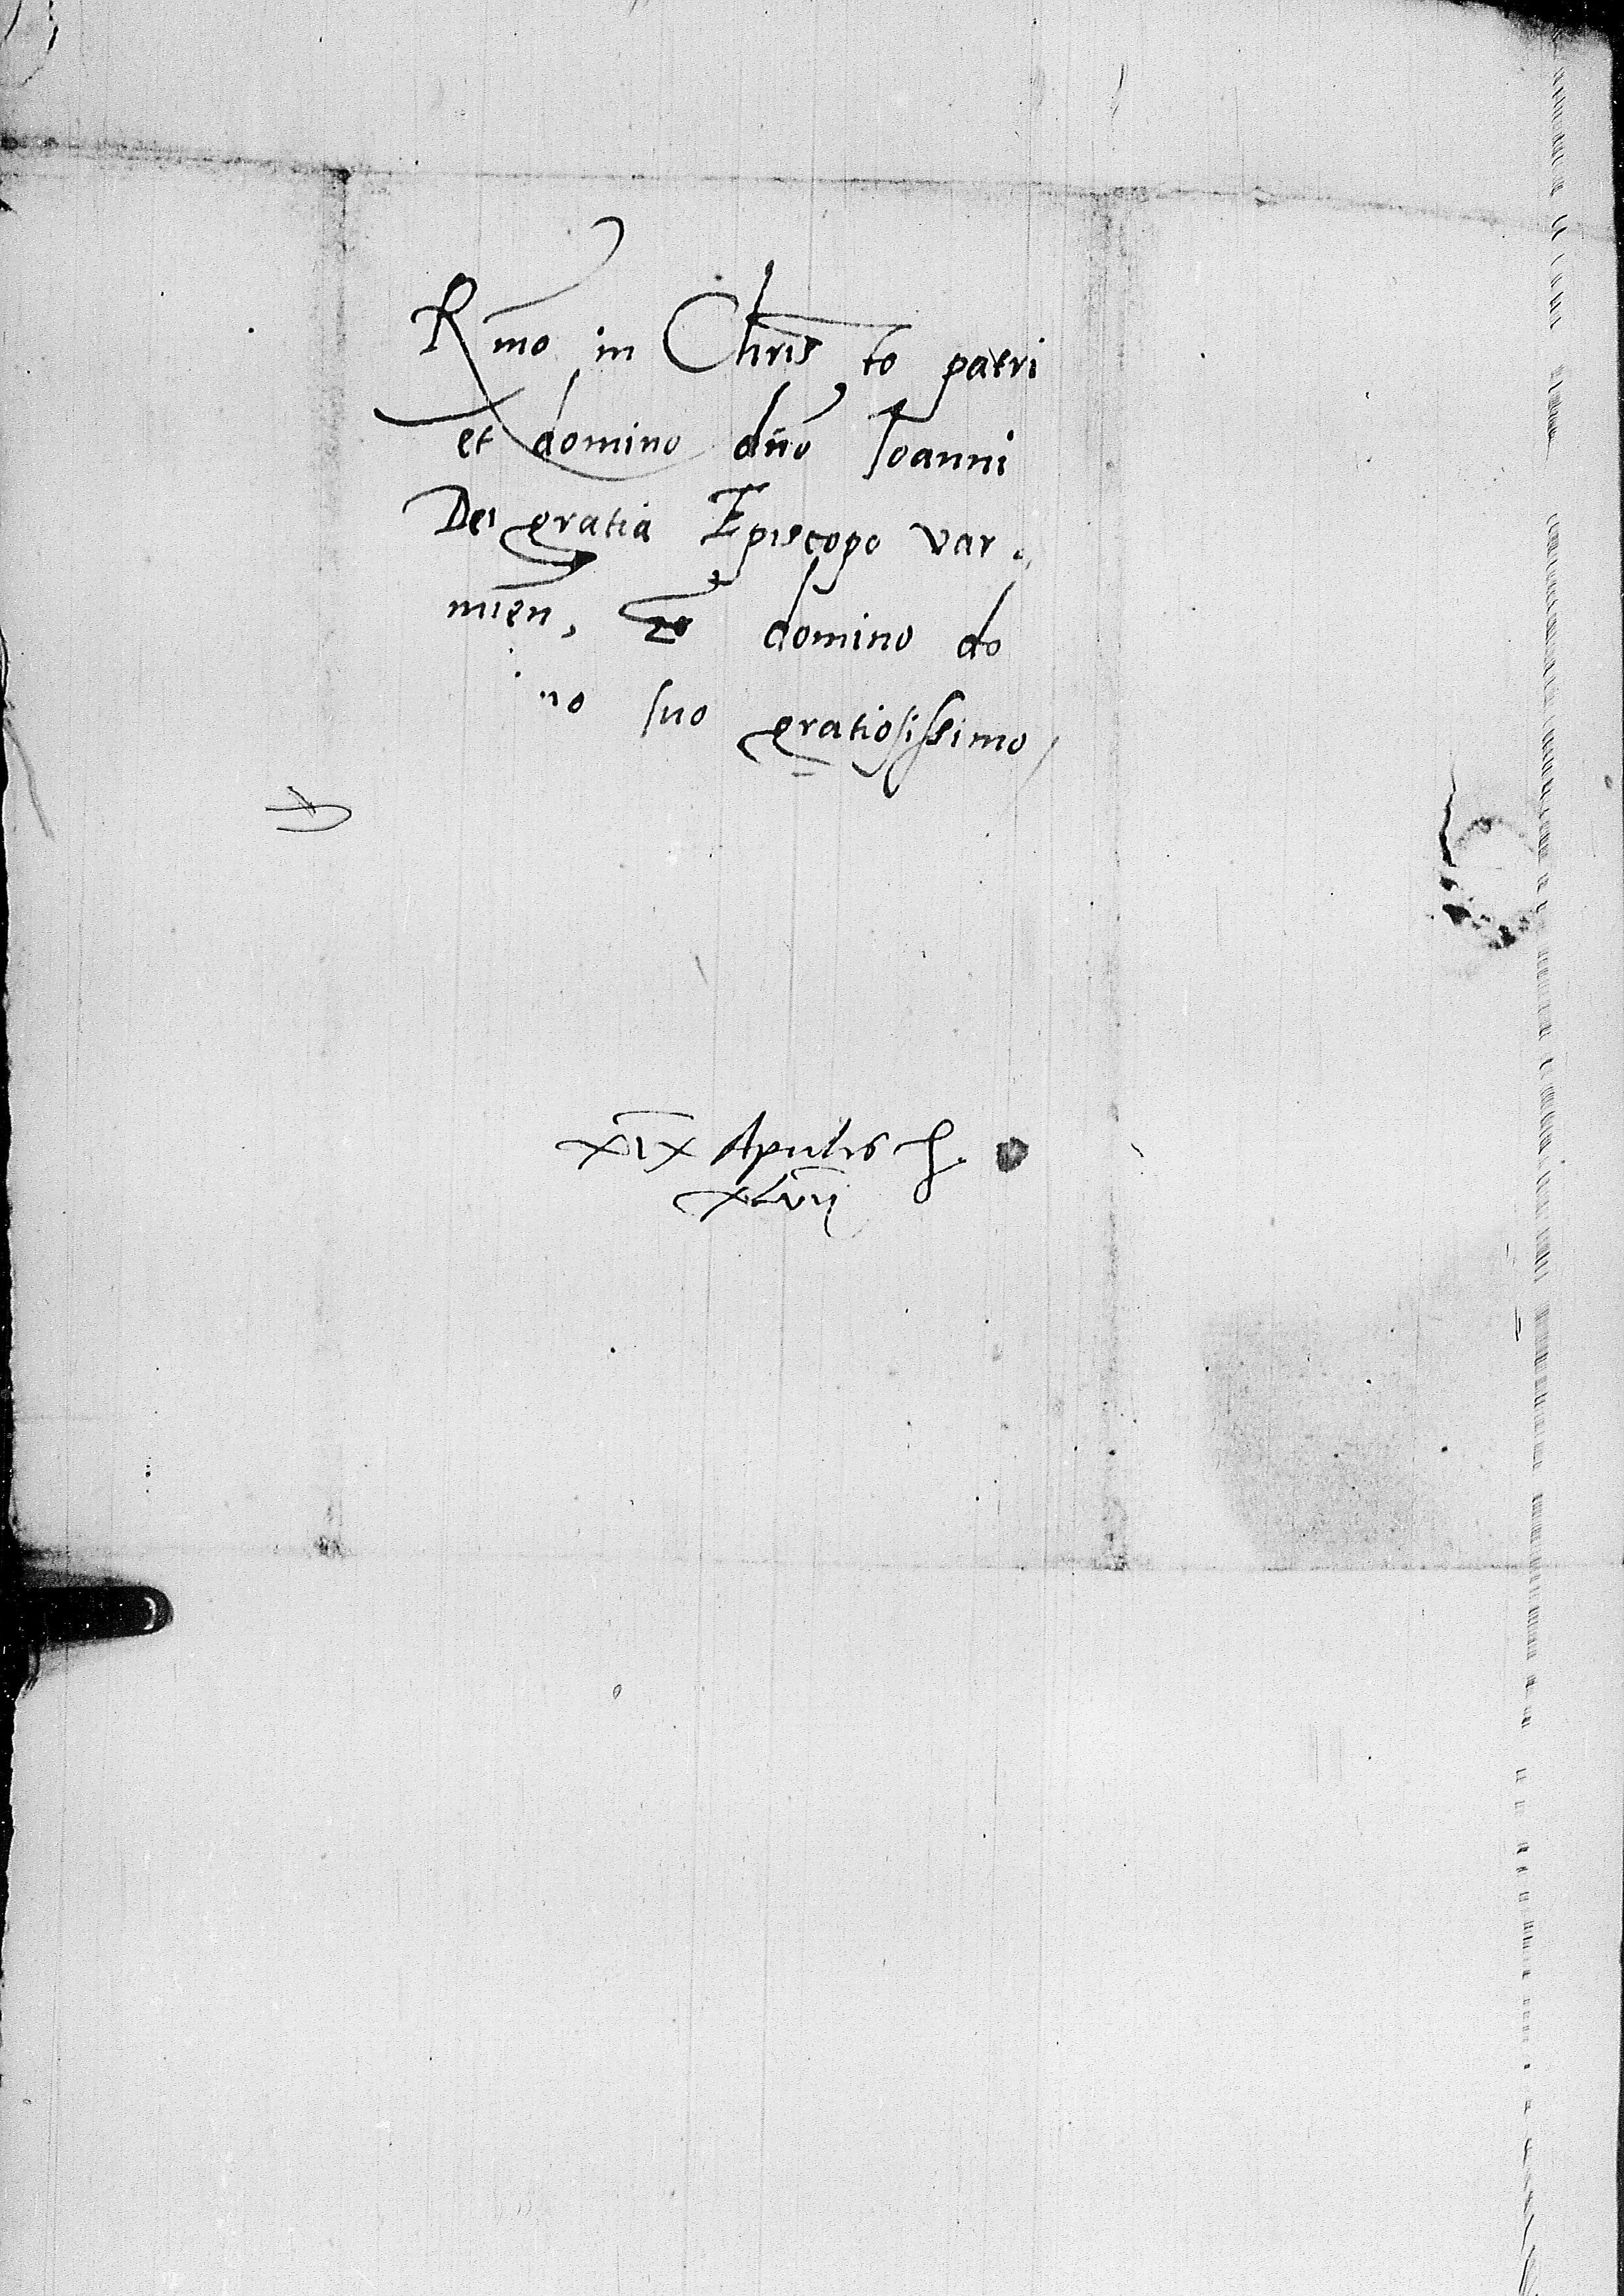 Rmo in Christo patri
et domino dno Ioanni
Dei gratia Episcopo var
mien, domino do
no suo gratiosissimo
XIX Aprilis
XLVII